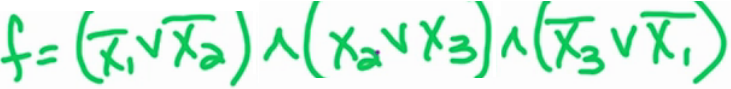 f = (x̅₁ ∨ x̅₂) ∧ (x₂ ∨ x₃) ∧ (x̅₃ ∨ x̅₁)